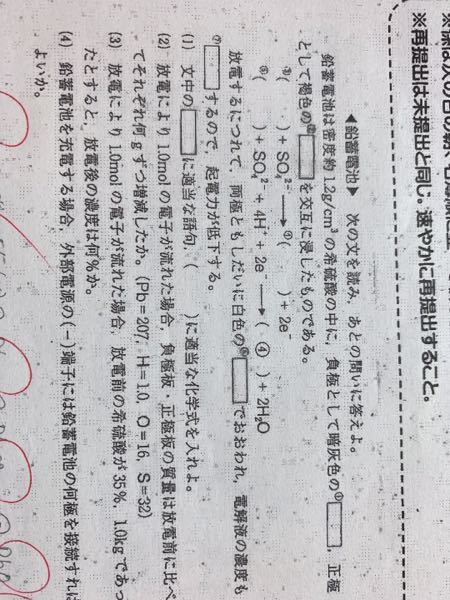 ※再提出は未提出と同じ。速やかに再提出すること。
◀鉛蓄電池▶ 次の文を読み，あとの問いに答えよ。
鉛蓄電池は密度約1.2g/cm³の希硫酸の中に，負極として暗灰色の①□，正極
として褐色の②□を交互に浸したものである。
③( ) + SO₄²⁻ → ( ) + 2e⁻
( ) + SO₄²⁻ + 4H⁺ + 2e⁻ → ( ④ ) + 2H₂O
放電するにつれて，両極ともしだいに白色の⑥□でおおわれ，電解液の濃度も
⑦□するので，起電力が低下する。
(1) 文中の□に適当な語句，( )に適当な化学式を入れよ。
(2) 放電により1.0molの電子が流れた場合，負極板・正極板の質量は放電前に比べ
てそれぞれ何gずつ増減したか。(Pb=207, H=1.0, O=16, S=32)
(3) 放電により1.0molの電子が流れた場合，放電前の希硫酸が35%，1.0kgであっ
たとすると，放電後の濃度は何%か。
(4) 鉛蓄電池を充電する場合，外部電源の(−)端子には鉛蓄電池の何極を接続すれば
よいか。